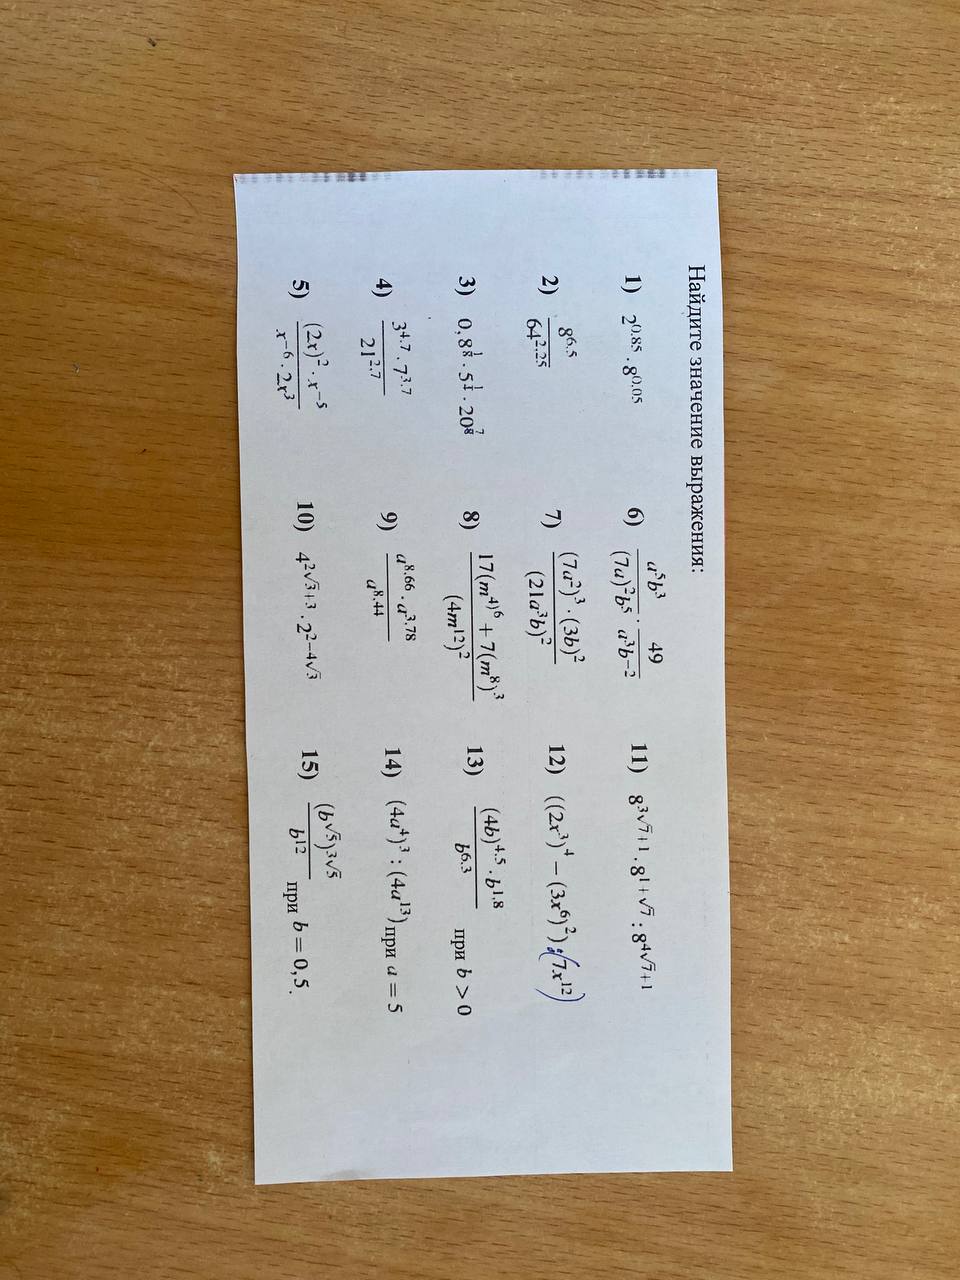 Найдите значение выражения:
1) 2^{0.85} · 8^{0.05}
2) \frac{8^{6.5}}{64^{2.25}}
3) 0,8^{\frac{1}{8}} · 5^{\frac{1}{4}} · 20^{\frac{7}{8}}
4) \frac{3^{4.7} · 7^{3.7}}{21^{2.7}}
5) \frac{(2x)^2 · x^{-5}}{x^{-6} · 2x^3}
6) \frac{a^5b^3}{(7a)^2b^5} · \frac{49}{a^3b^{-2}}
7) \frac{(7a^2)^3 · (3b)^2}{(21a^3b)^2}
8) \frac{17(m^{4)^6} + 7(m^8)^3}{(4m^{12})^2}
9) \frac{a^{8.66} · a^{3.78}}{a^{8.44}}
10) 4^{2\sqrt{3}+3} · 2^{2-4\sqrt{3}}
11) 8^{3\sqrt{7}+1} · 8^{1+\sqrt{7}} : 8^{4\sqrt{7}+1}
12) ((2x^3)^4 − (3x^6)^2) : (7x^{12})
13) \frac{(4b)^{4.5} · b^{1.8}}{b^{6.3}} при b > 0
14) (4a^4)^3 : (4a^{13}) при a = 5
15) \frac{(b^{\sqrt{5}})^{3\sqrt{5}}}{b^{12}} при b = 0,5.